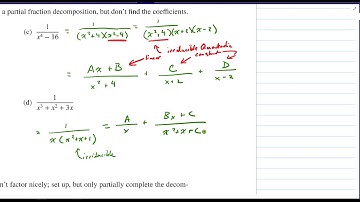 a partial fraction decomposition, but don't find the coefficients.
(c) 1/(x⁴ − 16) = 1/((x²+4)(x²-4)) = 1/((x²+4)(x+2)(x-2))
irreducible Quadratic
linear constants
= (Ax+B)/(x²+4) + C/(x+2) + D/(x-2)
(d) 1/(x³ + x² + 3x)
= 1/(x(x²+x+1)) = A/x + (Bx+C)/(x²+x+C)
irreducible
n't factor nicely; set up, but only partially complete the decom-